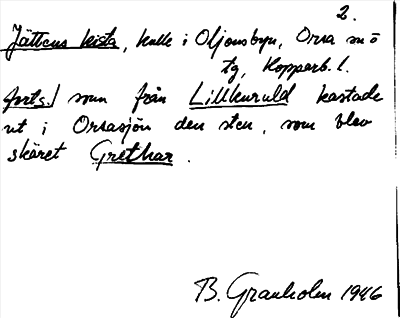 2.
Jättens kista, kulle i Oljonsbyn, Orsa sn ö
tg, Kopparb. l.
forts.) som från Lillkuruld kastade
ut i Orsasjön den sten, som blev
skäret Grethar.
B. Granholm 1946